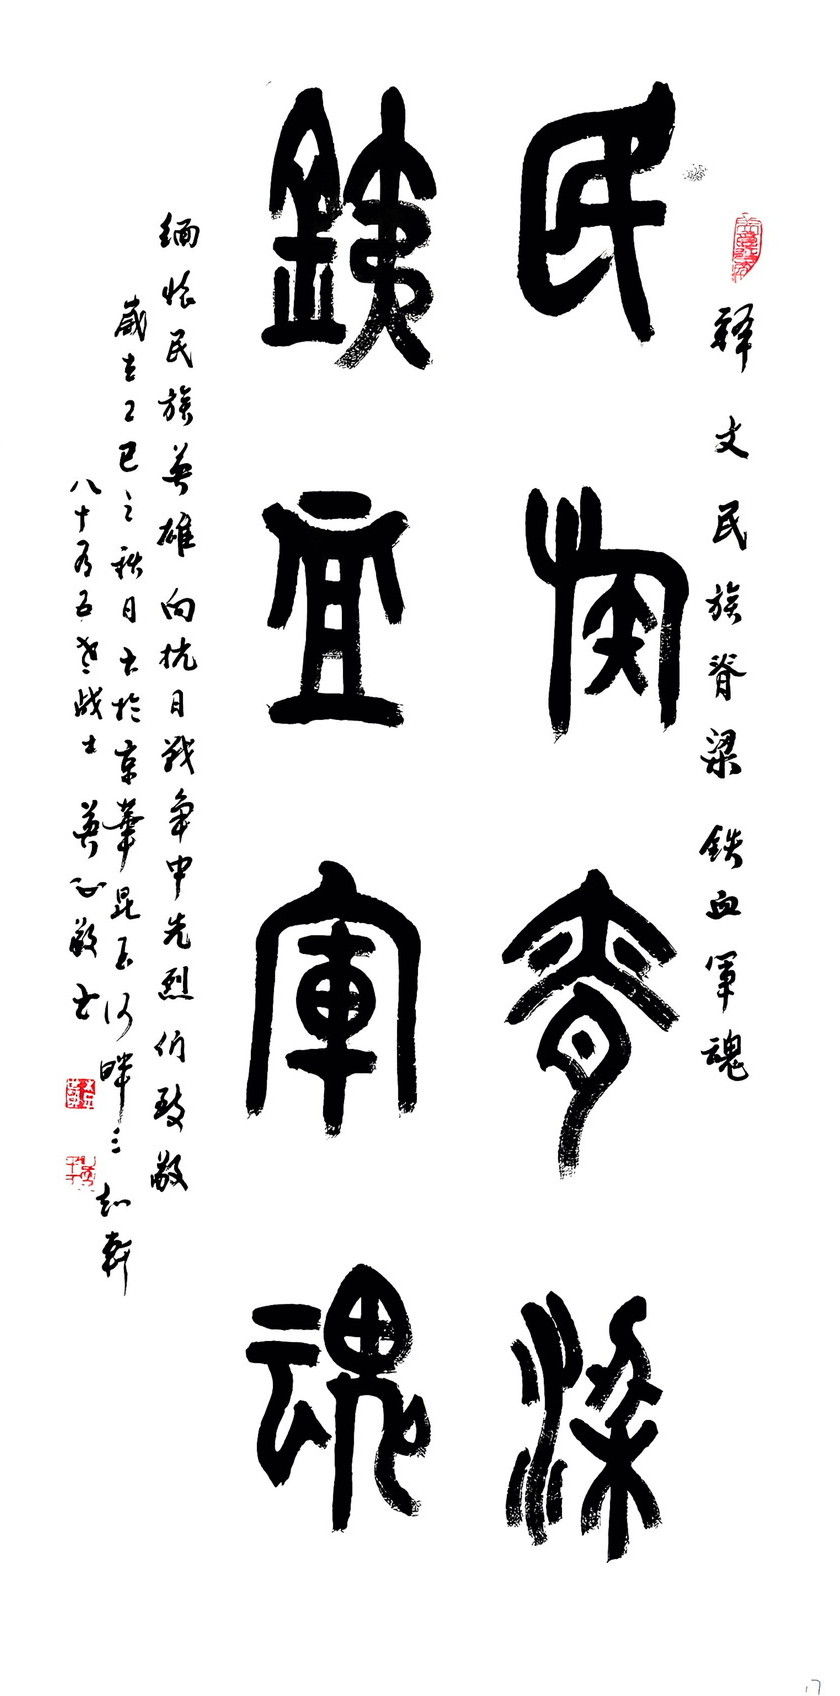 释文民族脊梁 鉄血军魂
民族脊梁
鐵血軍魂
缅怀民族英雄向抗日战争中先烈们致敬
嵗在乙巳之秋日书於京華昆玉河畔三知軒
八十有五老战士 英 敬书
17